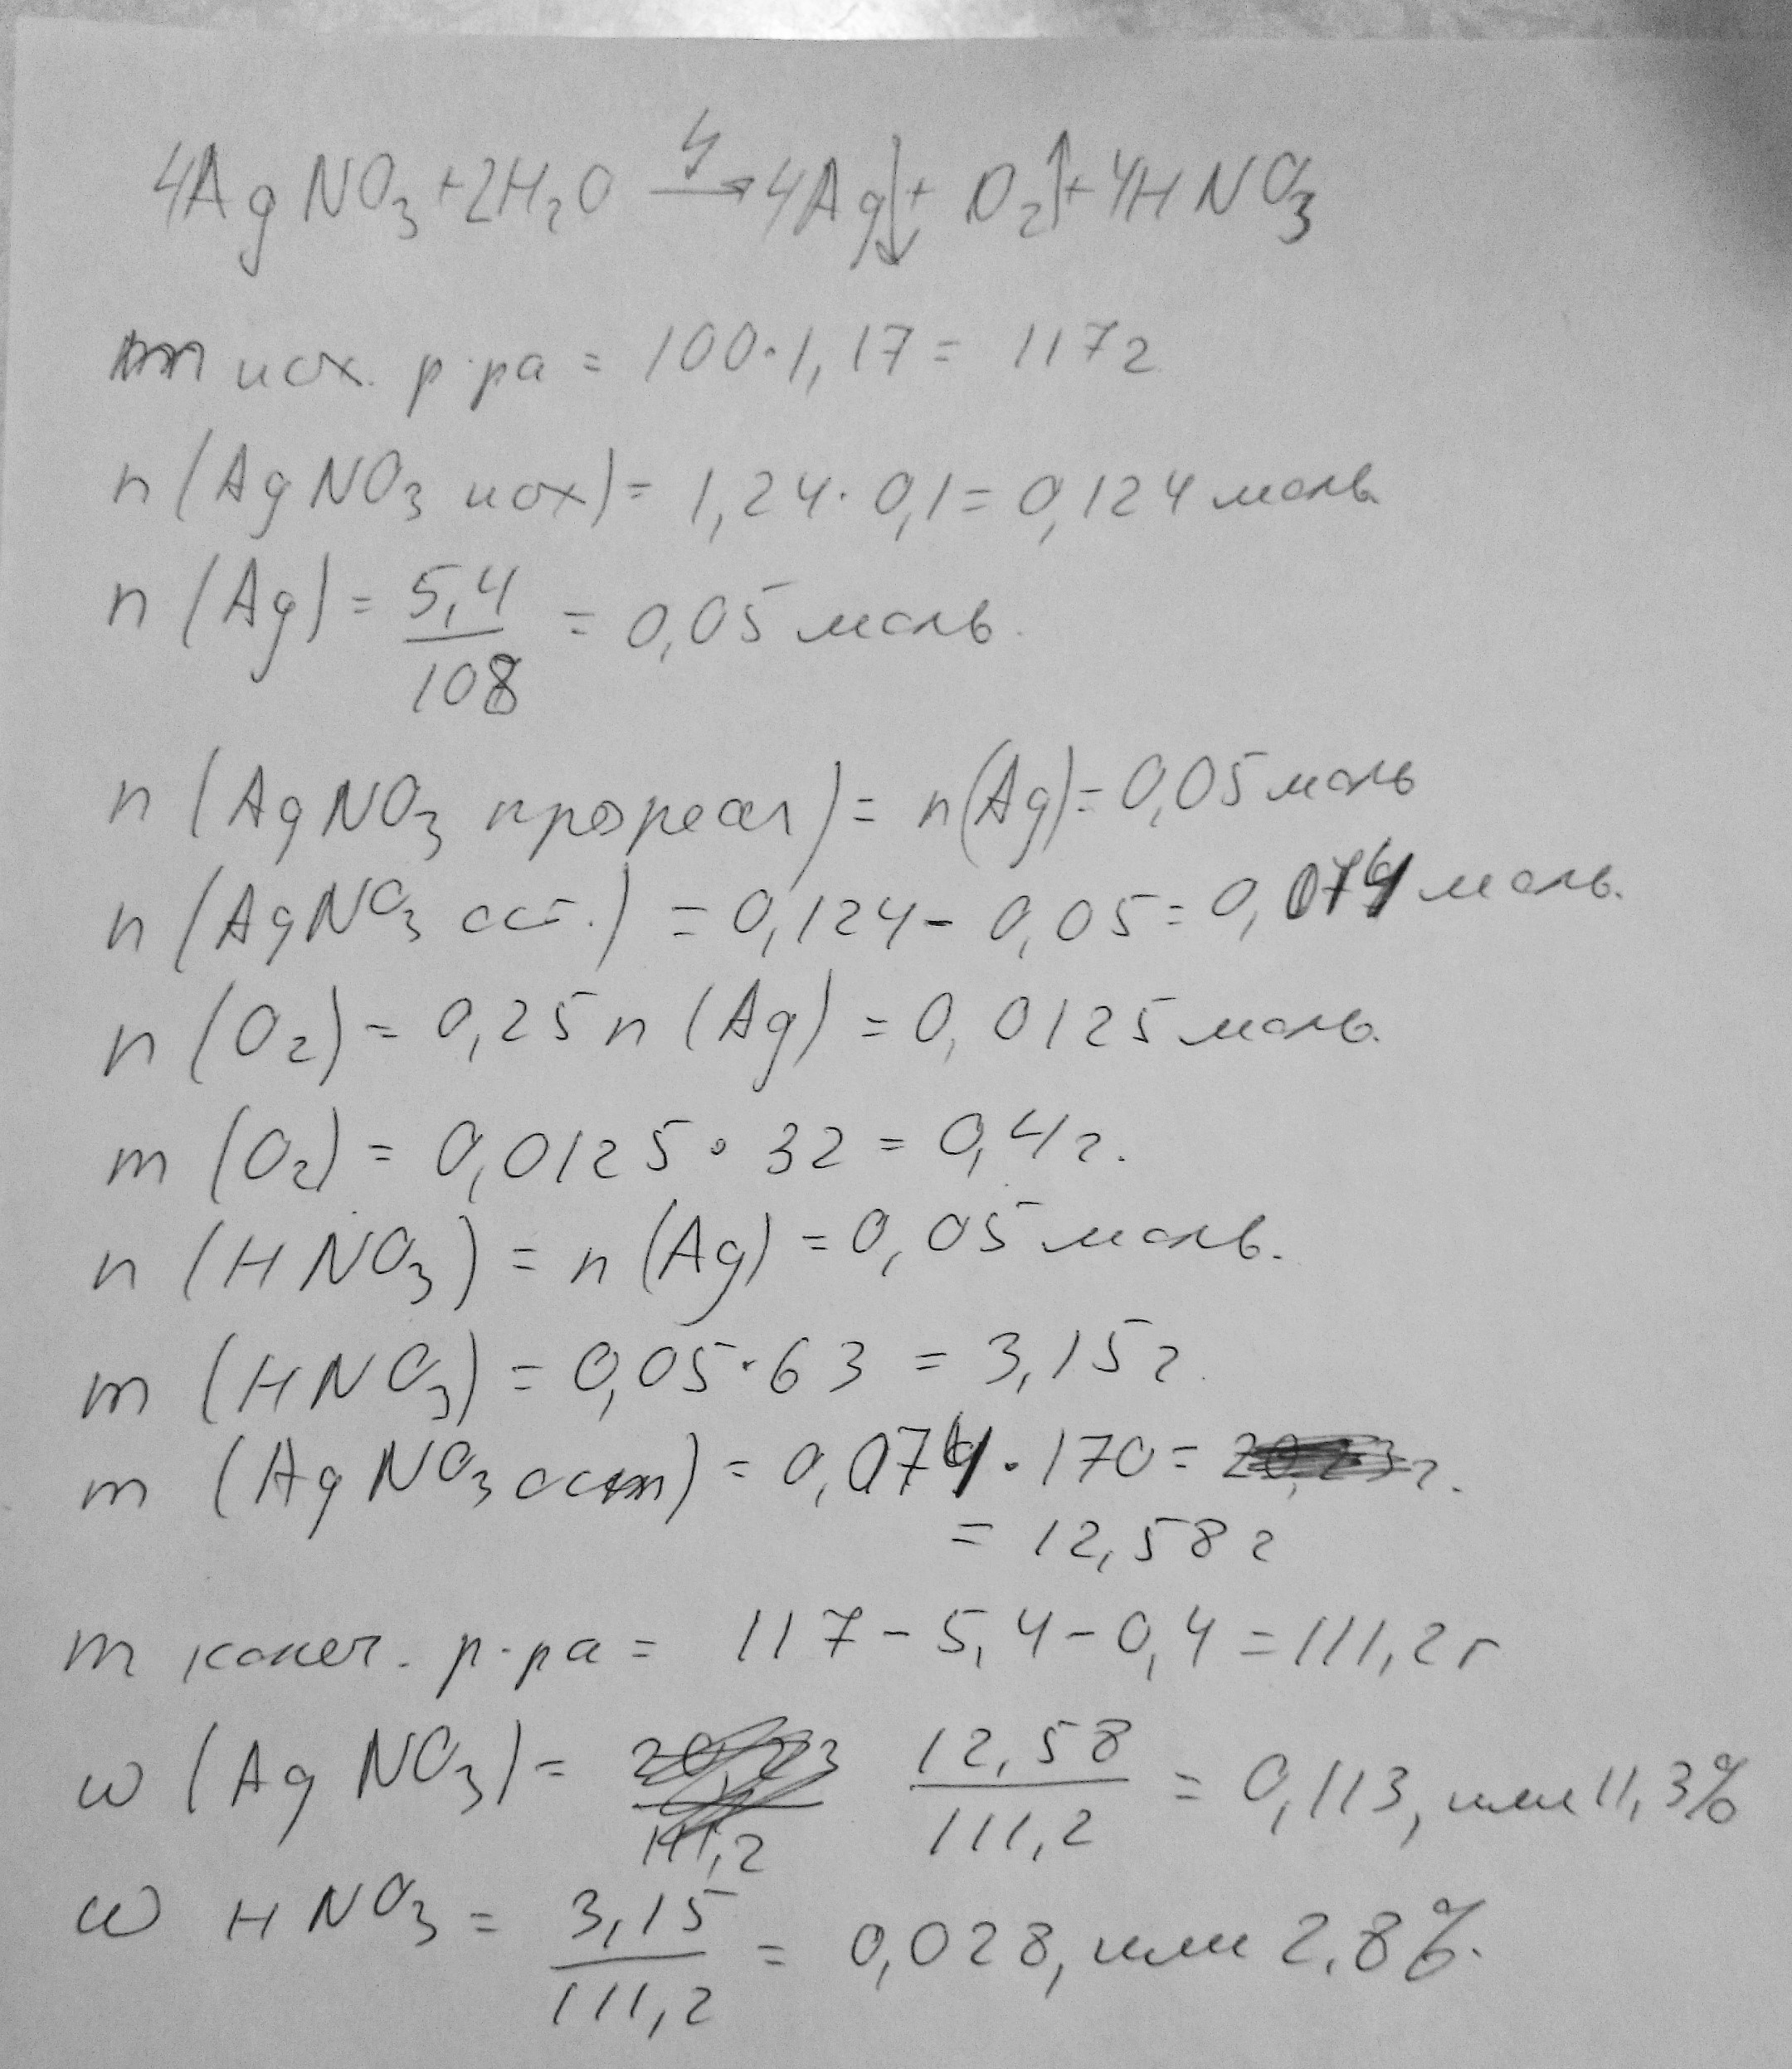 4AgNO₃+2H₂O →(ϟ) 4Ag↓+ O₂↑+4HNO₃
m исх. р-ра = 100·1,17 = 117 г
n (AgNO₃ исх) = 1,24 · 0,1 = 0,124 моль
n (Ag) = 5,4/108 = 0,05 моль.
n (AgNO₃ прореаг) = n(Ag) = 0,05 моль
n (AgNO₃ ост.) = 0,124 - 0,05 = 0,074 моль.
n (O₂) = 0,25 n (Ag) = 0,0125 моль.
m (O₂) = 0,0125 · 32 = 0,4 г.
n (HNO₃) = n (Ag) = 0,05 моль.
m (HNO₃) = 0,05 · 63 = 3,15 г.
m (AgNO₃ ост) = 0,074 · 170 = г.
= 12,58 г
m конеч. р-ра = 117 - 5,4 - 0,4 = 111,2 г
ω (AgNO₃) = 12,58/111,2 = 0,113, или 11,3%
ω HNO₃ = 3,15/111,2 = 0,028, или 2,8%.